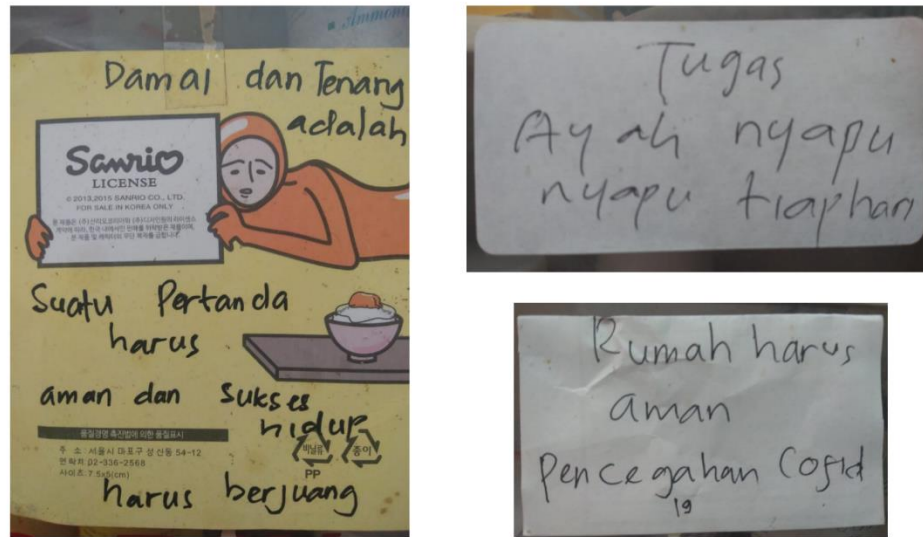 Ammoni
Damai dan Tenang
adalah
Sanrio
LICENSE
© 2013,2015 SANRIO CO., LTD.
FOR SALE IN KOREA ONLY
Suatu Pertanda
harus
aman dan sukses
hidup
품질경영 촉진법에 의한 품질표시
주 소: 서울시 마포구 성산동 54-12
연락처: 02-336-2568
사이즈: 7.5x5(cm)
비닐류
PP
종이
harus berjuang
Tugas
Ayah nyapu
nyapu tiaphari
Rumah harus
aman
Pencegahan Cofid
19